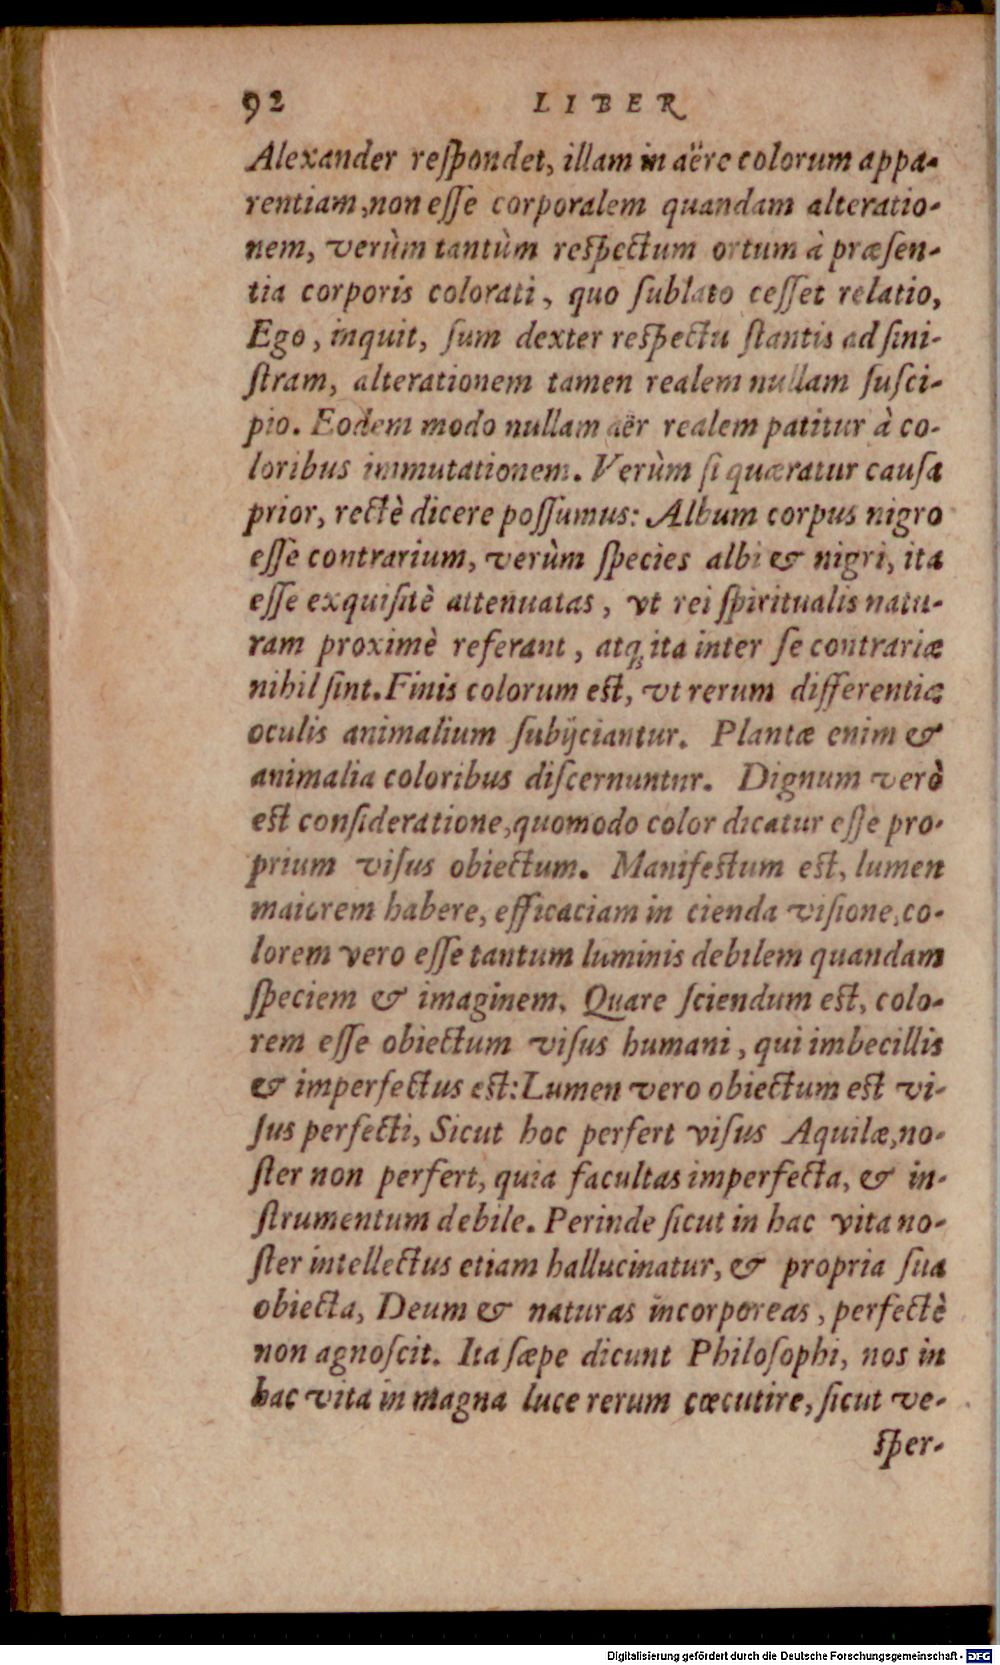 92 LIBER
Alexander reſpondet, illam in aëre colorum appa-
rentiam, non eſſe corporalem quandam alteratio-
nem, verùm tantùm reſpectum ortum à præſen-
tia corporis colorati, quo ſublato ceſſet relatio,
Ego, inquit, ſum dexter reſpectu ſtantis ad ſini-
ſtram, alterationem tamen realem nullam ſuſci-
pio. Eodem modo nullam aër realem patitur à co-
loribus immutationem. Verùm ſi quæratur cauſa
prior, rectè dicere poſſumus: Album corpus nigro
eſſe contrarium, verùm ſpecies albi & nigri, ita
eſſe exquiſitè attenuatas, vt rei ſpiritualis natu-
ram proximè referant, atq; ita inter ſe contrariæ
nihil ſint. Finis colorum eſt, vt rerum differentiæ
oculis animalium ſubijciantur. Plantæ enim &
animalia coloribus diſcernuntur. Dignum verò
eſt conſideratione, quomodo color dicatur eſſe pro-
prium viſus obiectum. Manifeſtum eſt, lumen
maiorem habere, efficaciam in cienda viſione, co-
lorem vero eſſe tantum luminis debilem quandam
ſpeciem & imaginem. Quare ſciendum eſt, colo-
rem eſſe obiectum viſus humani, qui imbecillis
& imperfectus eſt: Lumen vero obiectum eſt vi-
ſus perfecti, Sicut hoc perfert viſus Aquilæ, no-
ſter non perfert, quia facultas imperfecta, & in-
ſtrumentum debile. Perinde ſicut in hac vita no-
ſter intellectus etiam hallucinatur, & propria ſua
obiecta, Deum & naturas incorporeas, perfectè
non agnoſcit. Ita ſæpe dicunt Philoſophi, nos in
hac vita in magna luce rerum cœcutire, ſicut ve-
ſper-
Digitalisierung gefördert durch die Deutsche Forschungsgemeinschaft - DFG